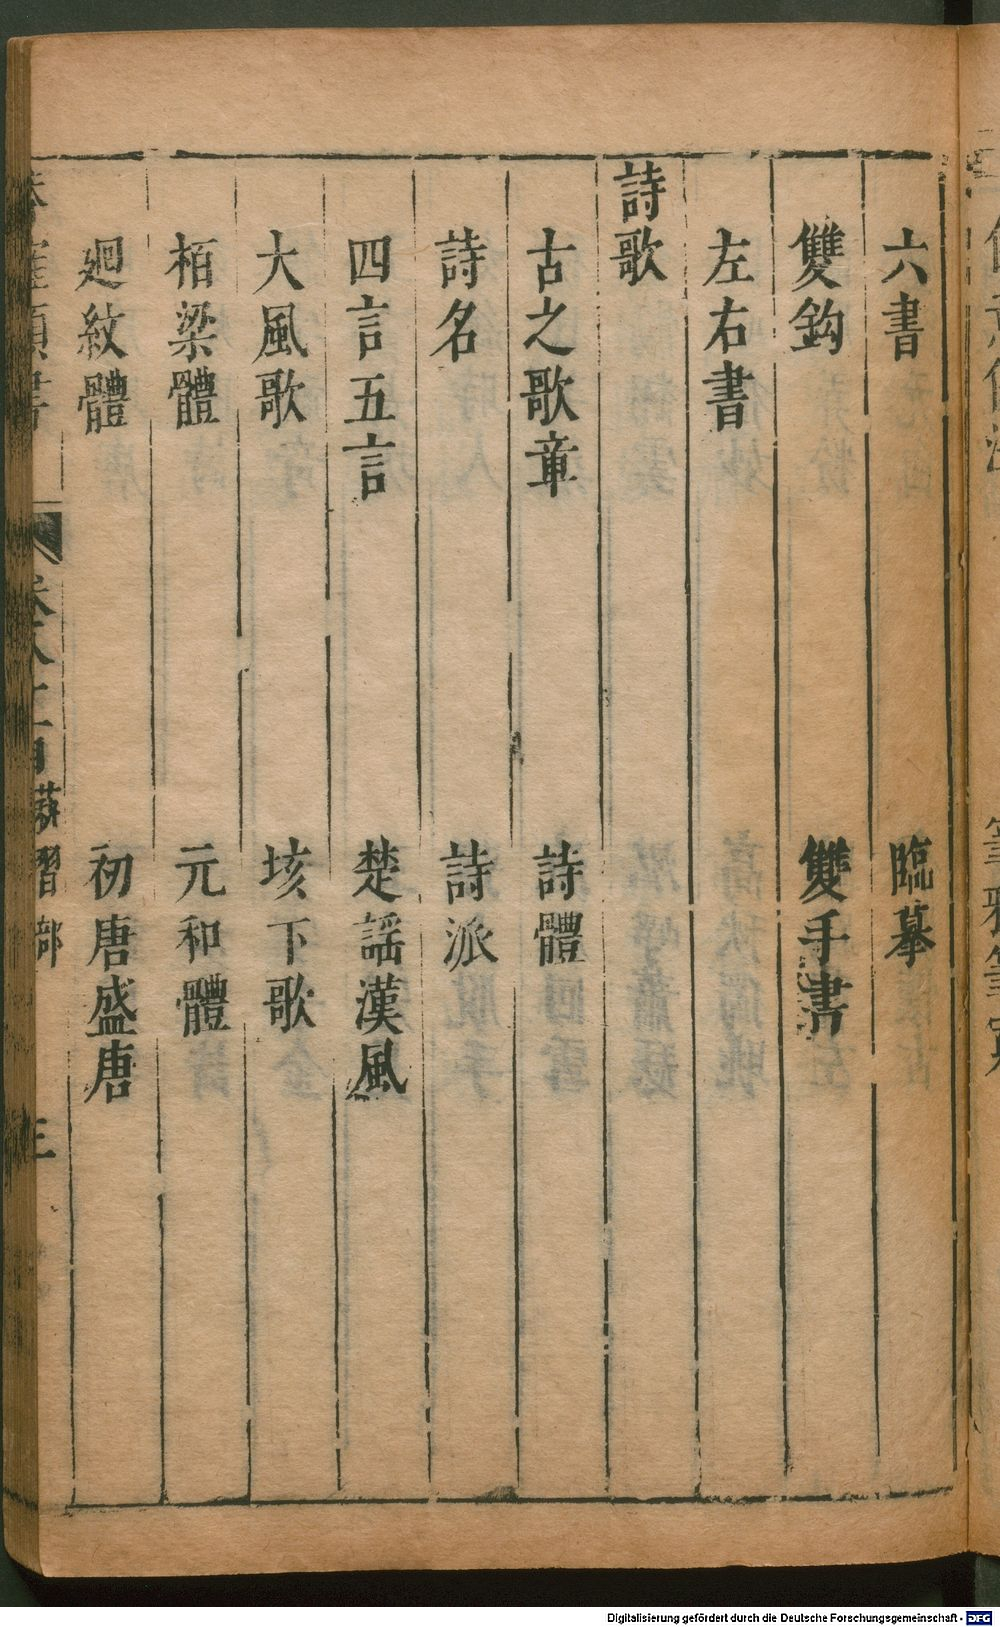 六書 臨摹
雙鈎 雙手書
左右書
詩歌
古之歌章 詩體
詩名 詩派
四言五言 楚謡漢風
大風歌 垓下歌
栢梁體 元和體
廻紋體 初唐盛唐
習部 三
Digitalisierung gefördert durch die Deutsche Forschungsgemeinschaft - DFG